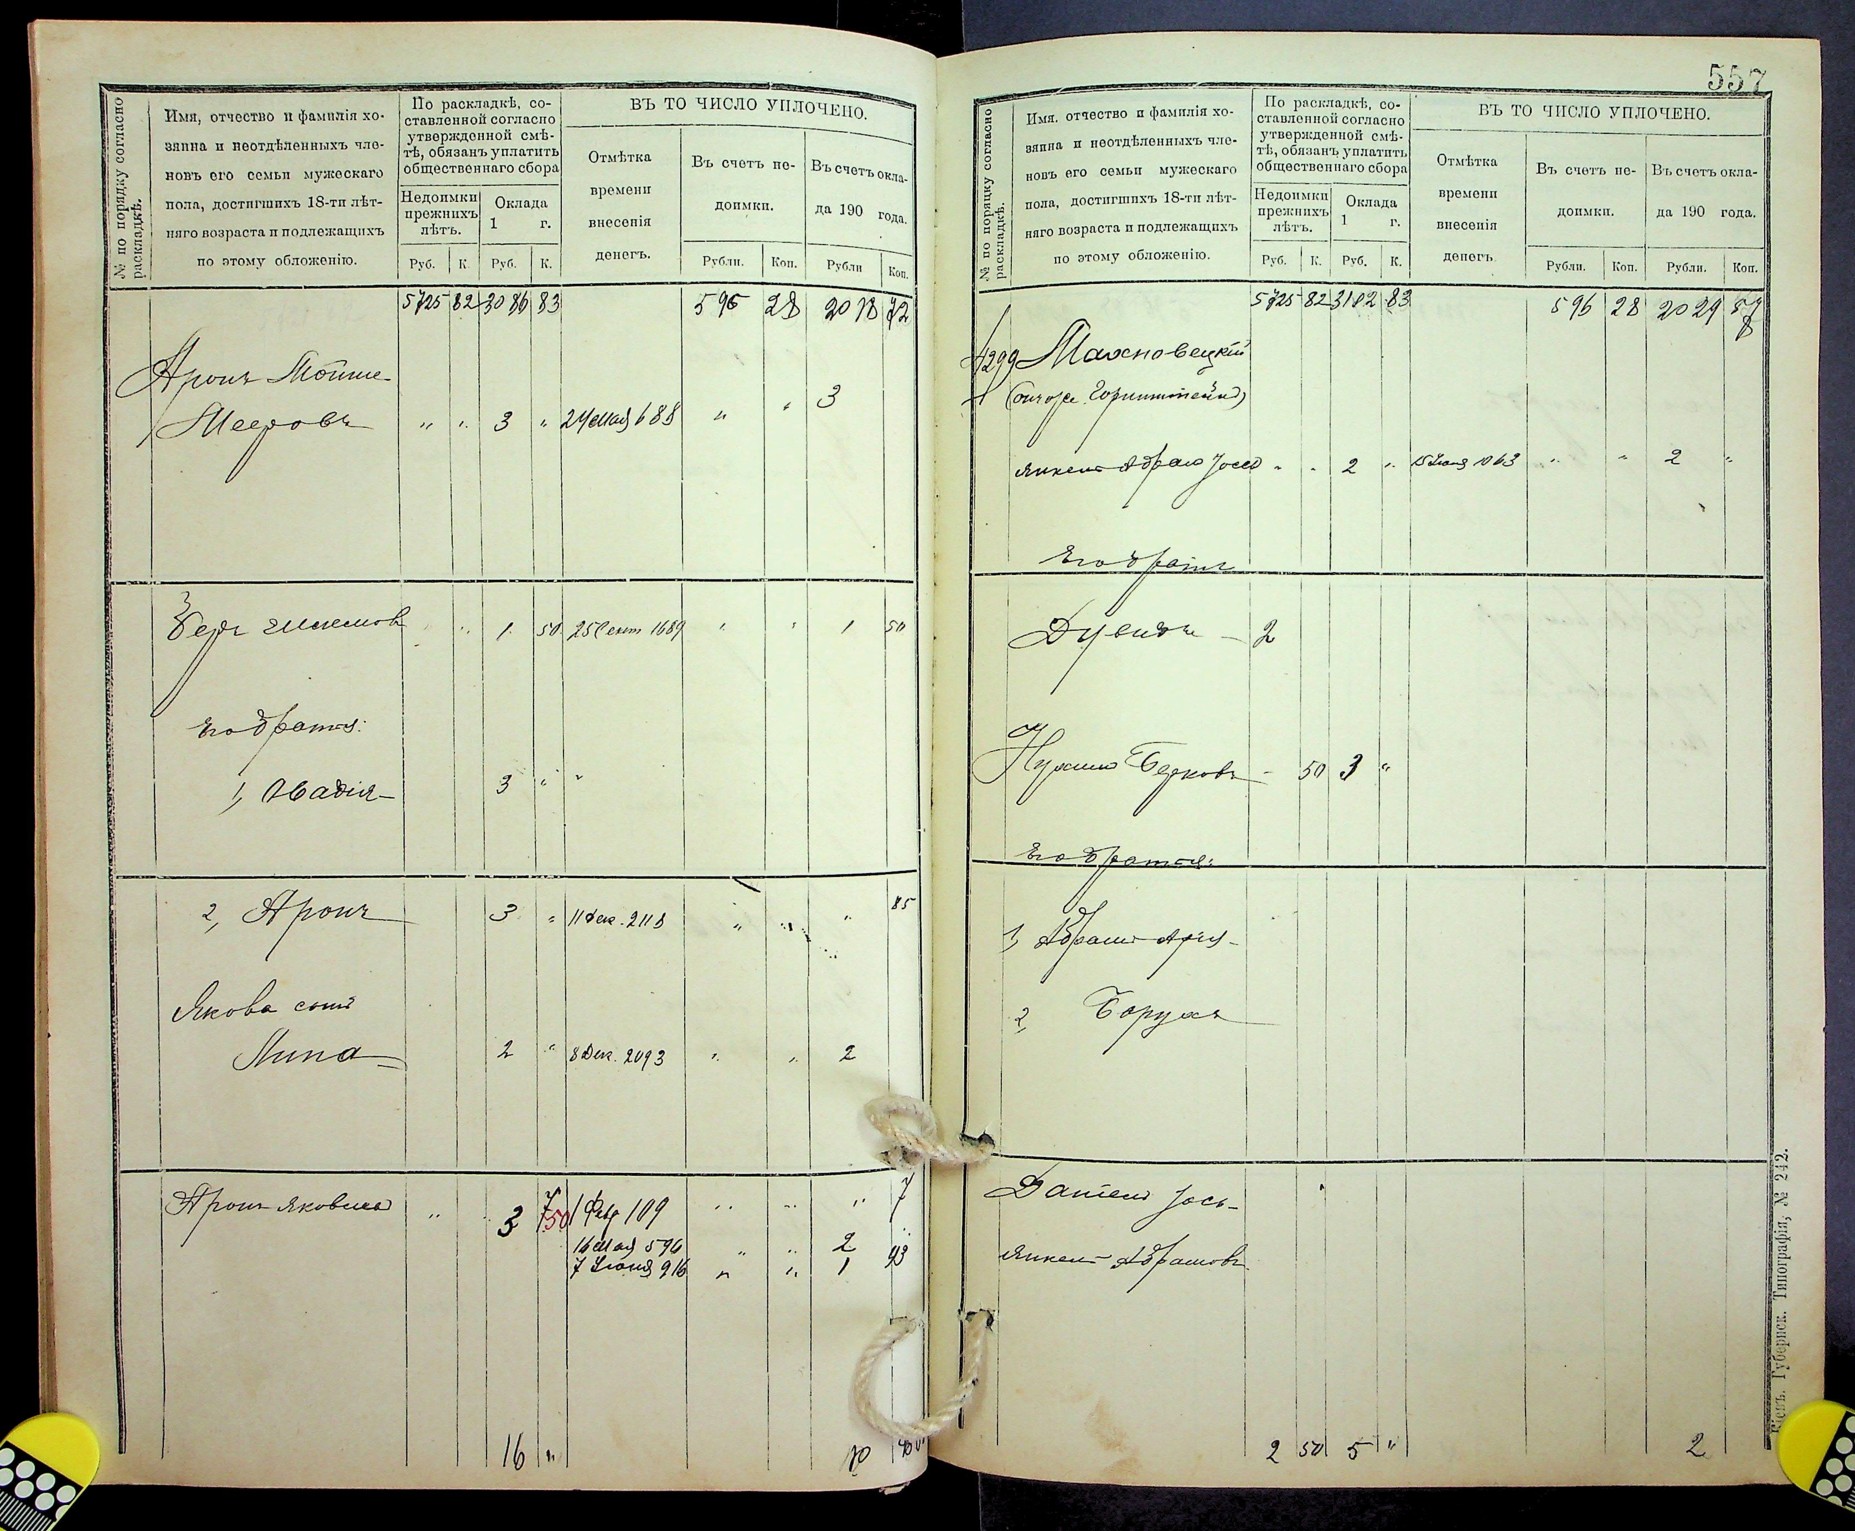 557
№ по порядку согласно
раскладкѣ.
Имя, отчество и фамилія хо-
зяина и неотдѣленныхъ чле-
новъ его семьи мужескаго
пола, достигшихъ 18-ти лѣт-
няго возраста и подлежащихъ
по этому обложенію.
По раскладкѣ, со-
ставленной согласно
утвержденной смѣ-
тѣ, обязанъ уплатить
общественнаго сбора
Недоимки
прежнихъ
лѣтъ.
Оклада
1 г.
Руб. К. Руб. К.
ВЪ ТО ЧИСЛО УПЛОЧЕНО.
Отмѣтка
времени
внесенія
денегъ.
Въ счетъ не-
доимки.
Въ счетъ окла-
да 190 года.
Рубли. Коп. Рубли Коп.
5725 82 3086 83 596 28 2018 72
Аронъ Мойше-
Мееровъ " " 3 " 24 мая 688 " " 3
Беръ " 1 50 25 Сент 1689 " " 1 50
Его братья:
1, Овадія 3 " "
2, Аронъ 3 " 11 Дек. 2118 " " " 85
Якова сынъ
Липа 2 " 8 Дек. 2093 " " 2
Аронъ Яковлев " 3 50 1 Фев 109 " " " 7
16 мая 596 " " 2
7 Іюня 916 " " 1 93
16 "
№ по порядку согласно
раскладкѣ.
Имя. отчество и фамилія хо-
зяина и неотдѣленныхъ чле-
новъ его семьи мужескаго
пола, достигшихъ 18-ти лѣт-
няго возраста и подлежащихъ
по этому обложенію.
По раскладкѣ, со-
ставленной согласно
утвержденной смѣ-
тѣ, обязанъ уплатить
общественнаго сбора
Недоимки
прежнихъ
лѣтъ.
Оклада
1 г.
Руб. К. Руб. К.
ВЪ ТО ЧИСЛО УПЛОЧЕНО.
Отмѣтка
времени
внесенія
денегъ
Въ счетъ не-
доимки.
Въ счетъ окла-
да 190 года.
Рубли. Коп. Рубли. Коп.
5725 82 3102 83 596 28 2029 57
1299 Махновецкій
(онъ же Горинштейнъ)
Янкель Абрам Іосев " " 2 " 15 Іюня 1063 " " 2 "
Его братъ
Дувидъ - 2
Берковъ - 50 3 "
Его братья:
1, Абрамъ Арія
2, Борухъ
Даніель Іось-
Янкель Абрамовъ
2 50 5 " 2
Кіевъ. Губернск. Типографія, № 242.